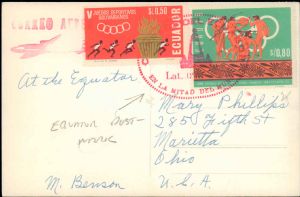 CORREO AEREO
V JUEGOS DEPORTIVOS
BOLIVARIANOS
S/0.50
ECUADOR
S/.0.80
EN LA MITAD DEL
Lat. 0
At the Equator
Mary Phillips
2850 Fifth St
Marietta
Ohio
U.S.A.
EQUATOR POST-
MARK
M. Benson